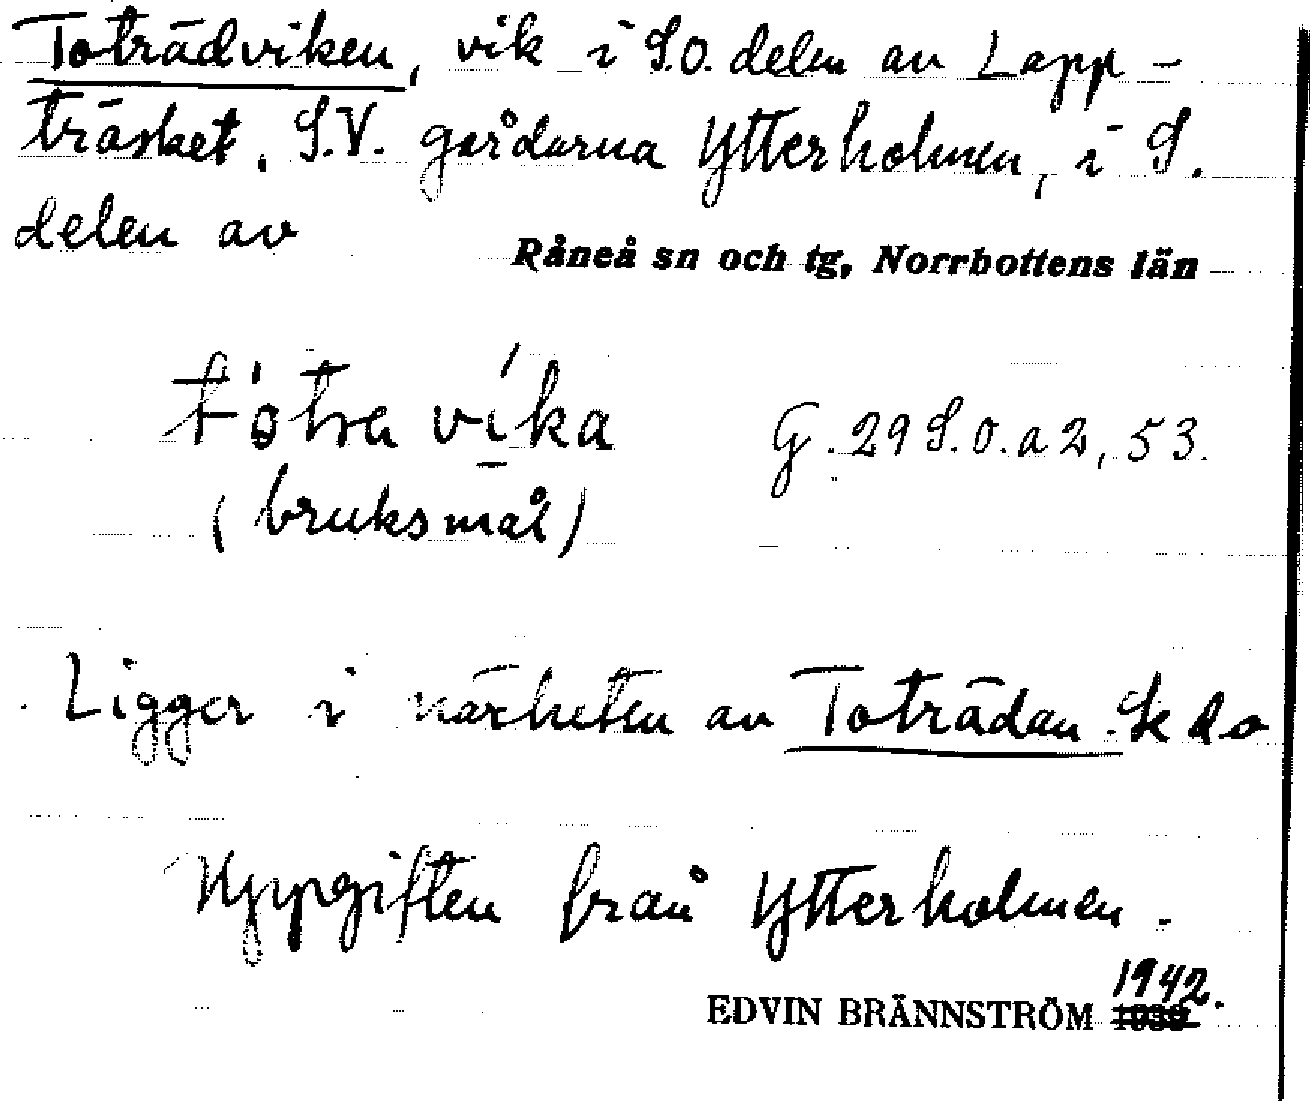 Toträdviken, vik i S.O. delen av Lapp-
träsket, S.V. gårdarna Ytterholmen, i S.
delen av
Råneå sn och tg, Norrbottens län
tótra víka G. 29 S.O. a 2, 53.
(bruksmål)
Ligger i närheten av Toträdan. Se d o
Uppgiften från Ytterholmen.
1942.
EDVIN BRÄNNSTRÖM 1939